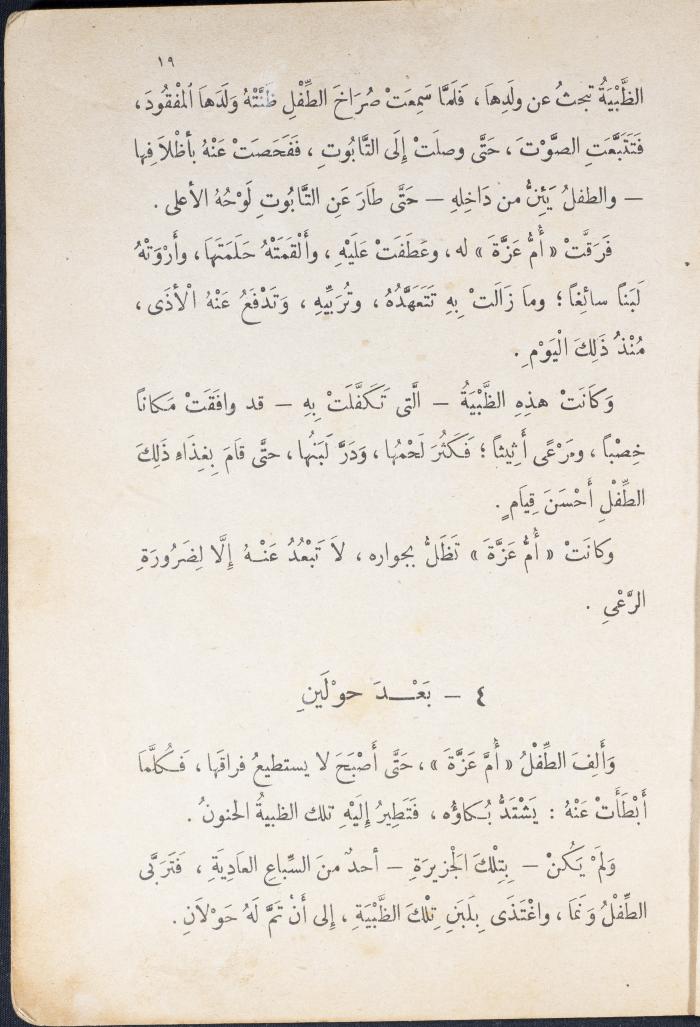 ١٩
الظَّبْيَةُ تبحثُ عن ولَدِهَا ، فَلَمَّا سَمِعَتْ صُرَاخَ الطِّفْلِ ظَنَّتْهُ وَلَدَهَا الْمَفْقُودَ ،
فَتَتَبَّعَتِ الصَّوْتَ ، حَتَّى وصلَتْ إِلَى التَّابُوتِ ، فَفَحَصَتْ عَنْهُ بأَظْلاَفِها
— والطفلُ يَئِنُّ من دَاخِلِهِ — حَتَّى طَارَ عَنِ التَّابُوتِ لَوْحُهُ الأعلى .
فَرَقَّتْ « أُمُّ عَزَّةَ » له ، وعَطَفَتْ عَلَيْهِ ، وأَلْقَمَتْهُ حَلَمَتَهَا ، وأَرْوَتْهُ
لَبَنًا سائِغًا ؛ وما زَالَتْ بِهِ تَتَعَهَّدُهُ ، وتُرَبِّيهِ ، وَتَدْفَعُ عَنْهُ الْأَذَى ،
مُنْذُ ذَلِكَ الْيَوْمِ .
وَكَانَتْ هذِهِ الظَّبْيَةُ — الَّتِى تَكَفَّلَتْ بِهِ — قد وافَقَتْ مَكانًا
خِصْبًا ، ومَرْعًى أَثِيثًا ؛ فَكَثُرَ لَحْمُهَا ، وَدَرَّ لَبَنُها ، حتَّى قَامَ بِغِذَاءِ ذَلِكَ
الطِّفْلِ أَحْسَنَ قِيَامٍ .
وكانَتْ « أُمُّ عَزَّةَ » تَظَلُّ بجواره ، لاَ تَبْعُدُ عَنْـهُ إِلَّا لِضَرُورَةِ
الرَّعْىِ .
٤ — بَعْـــدَ حوْلَينِ
وَأَلِفَ الطِّفْلُ « أُمَّ عَزَّةَ » ، حَتَّى أَصْبَحَ لا يستطيعُ فراقَها ، فَـكُلَّمَا
أَبْطَأَتْ عَنْهُ : يَشْتَدُّ بُـكاؤُه ، فَتَطِيرُ إِلَيْهِ تلك الظبيةُ الحنونُ .
وَلَمْ يَكُنْ — بِتِلْكَ الْجَزيرَةِ — أحدٌ منَ السِّباعِ العَادِيَةِ ، فَتَرَبَّى
الطِّفْلُ وَنَمَا ، واغْتَذَى بِلَبَنِ تِلْكَ الظَّبْيَةِ ، إلى أَنْ تَمَّ لَهُ حَوْلاَنِ .